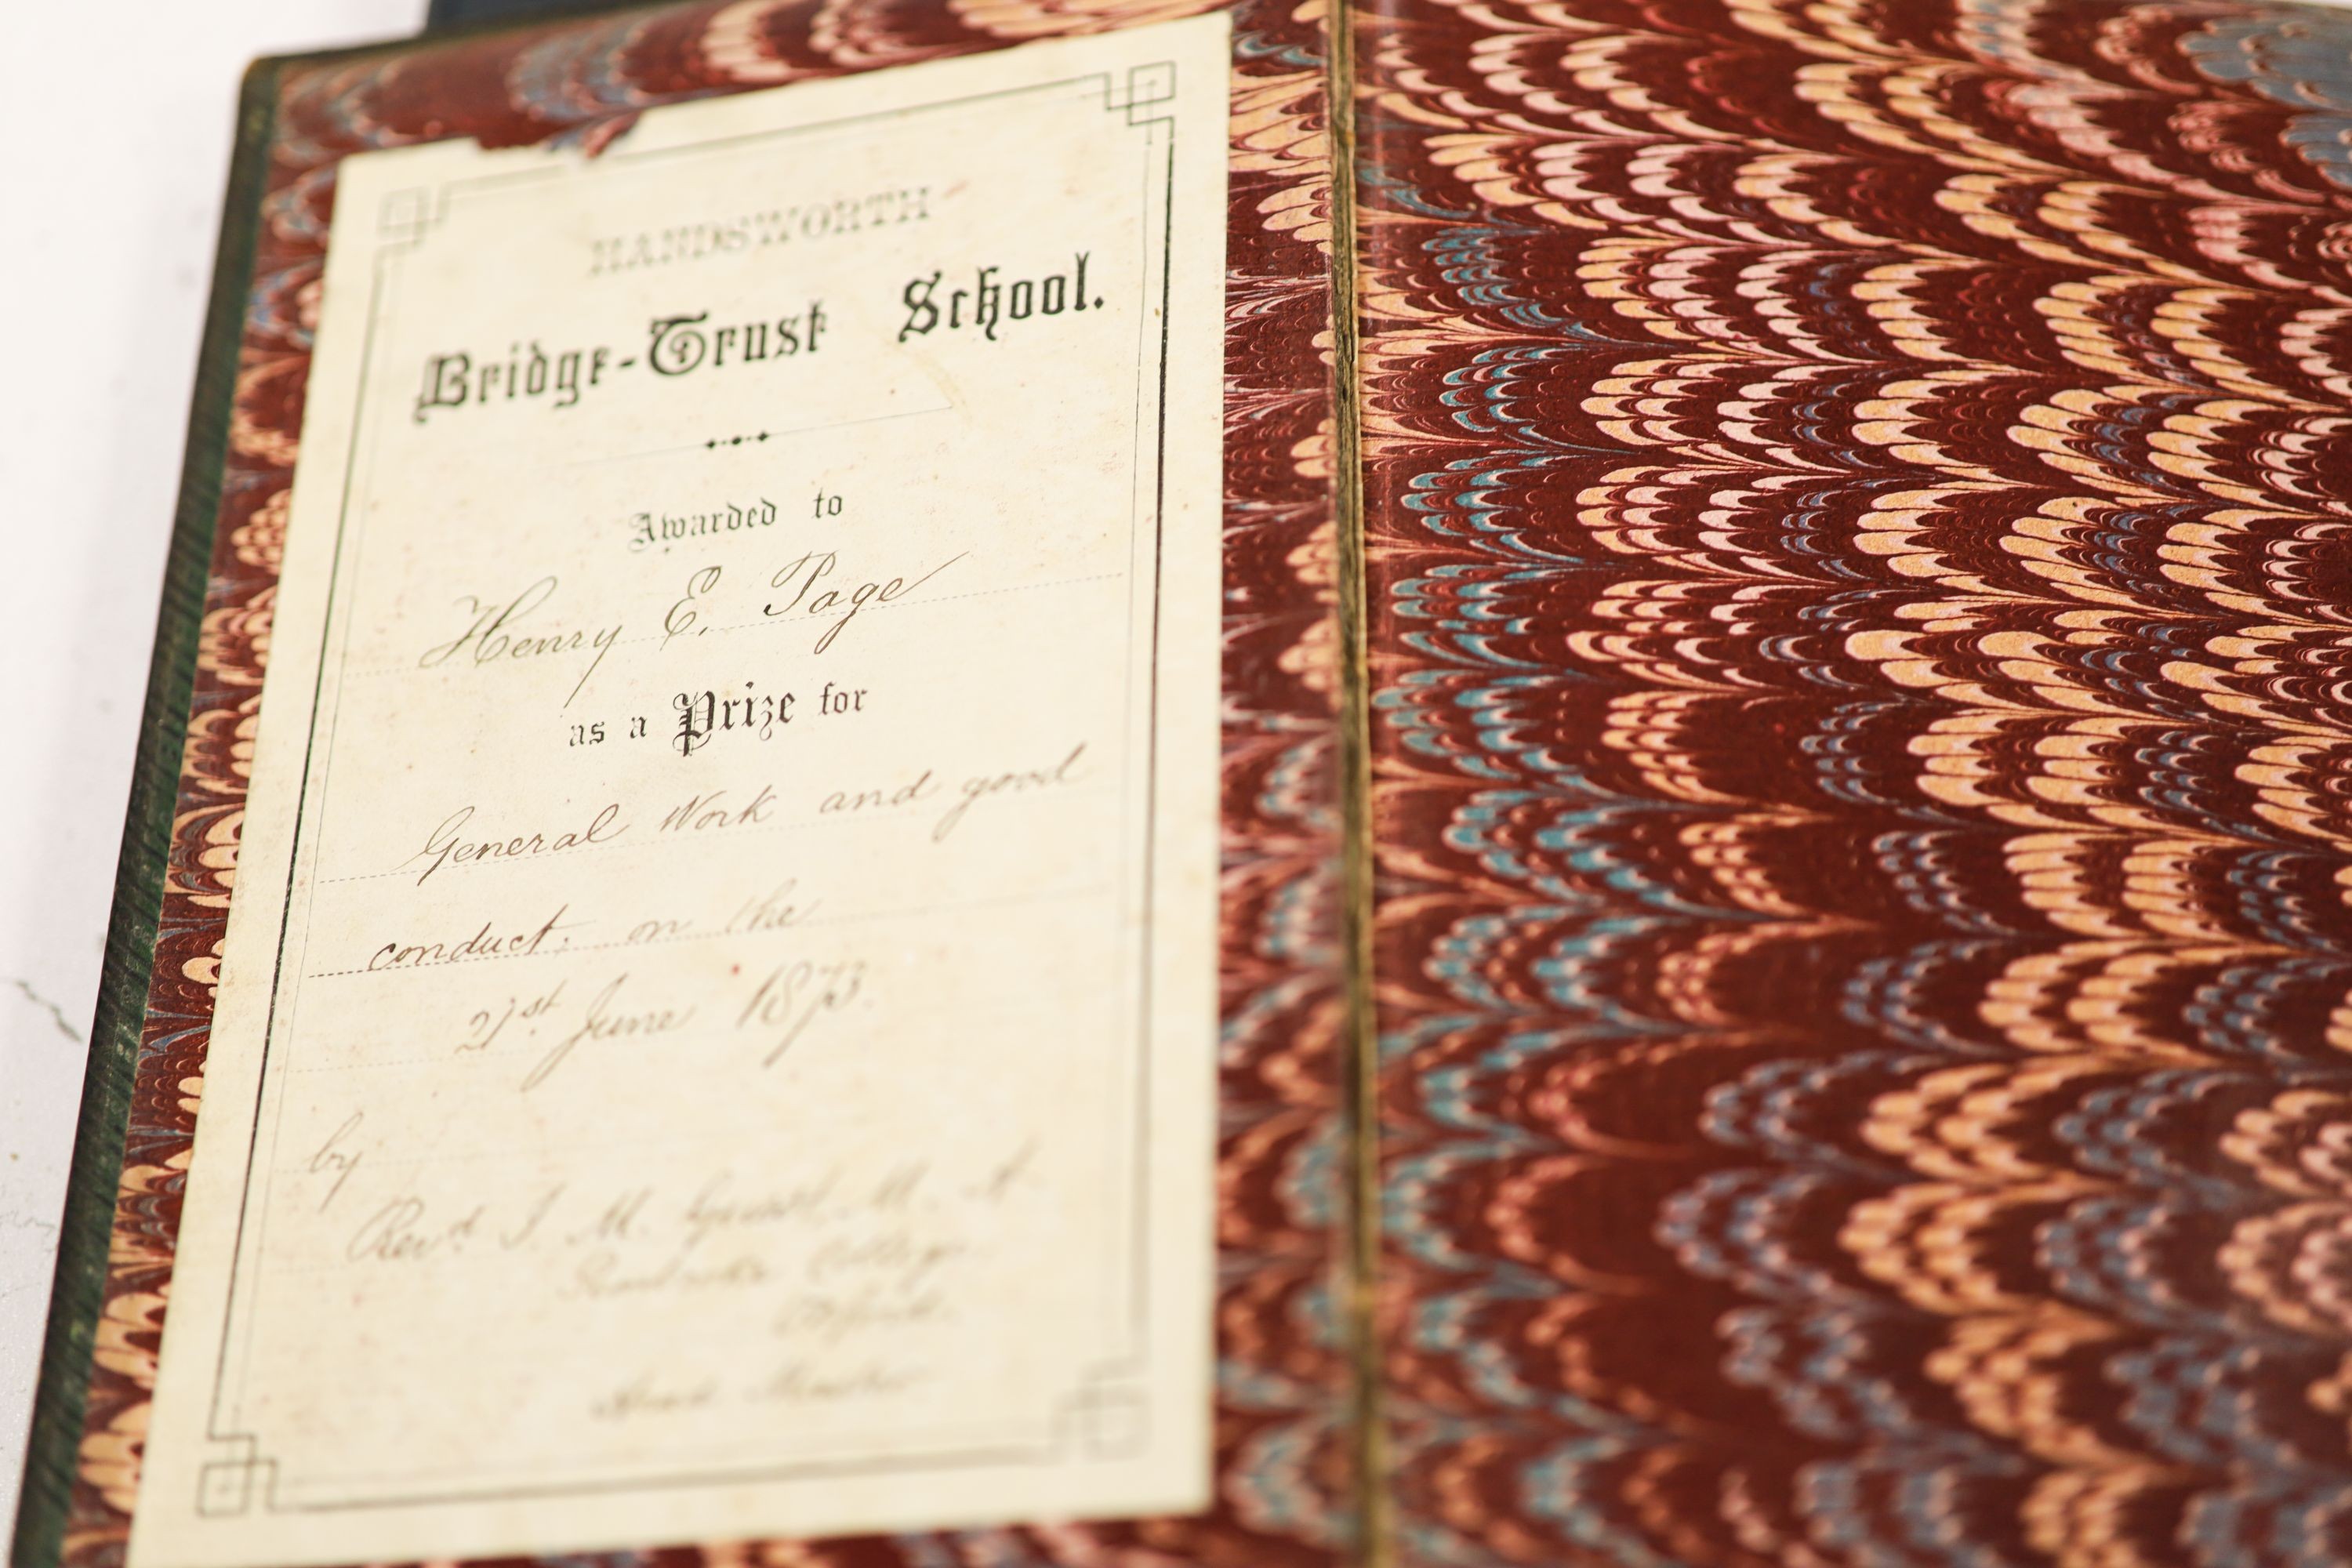 HANDSWORTH
Bridge-Trust School.
Awarded to
Henry E. Page
as a Prize for
General Work and good
conduct: on the
21st June 1873.
by
Revd I. M. Guest M. A.
College
Oxford.
Head Master